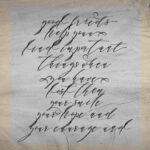 good friends
help you
find important
things when
you have
lost them
your smile
your hope and
your courage and